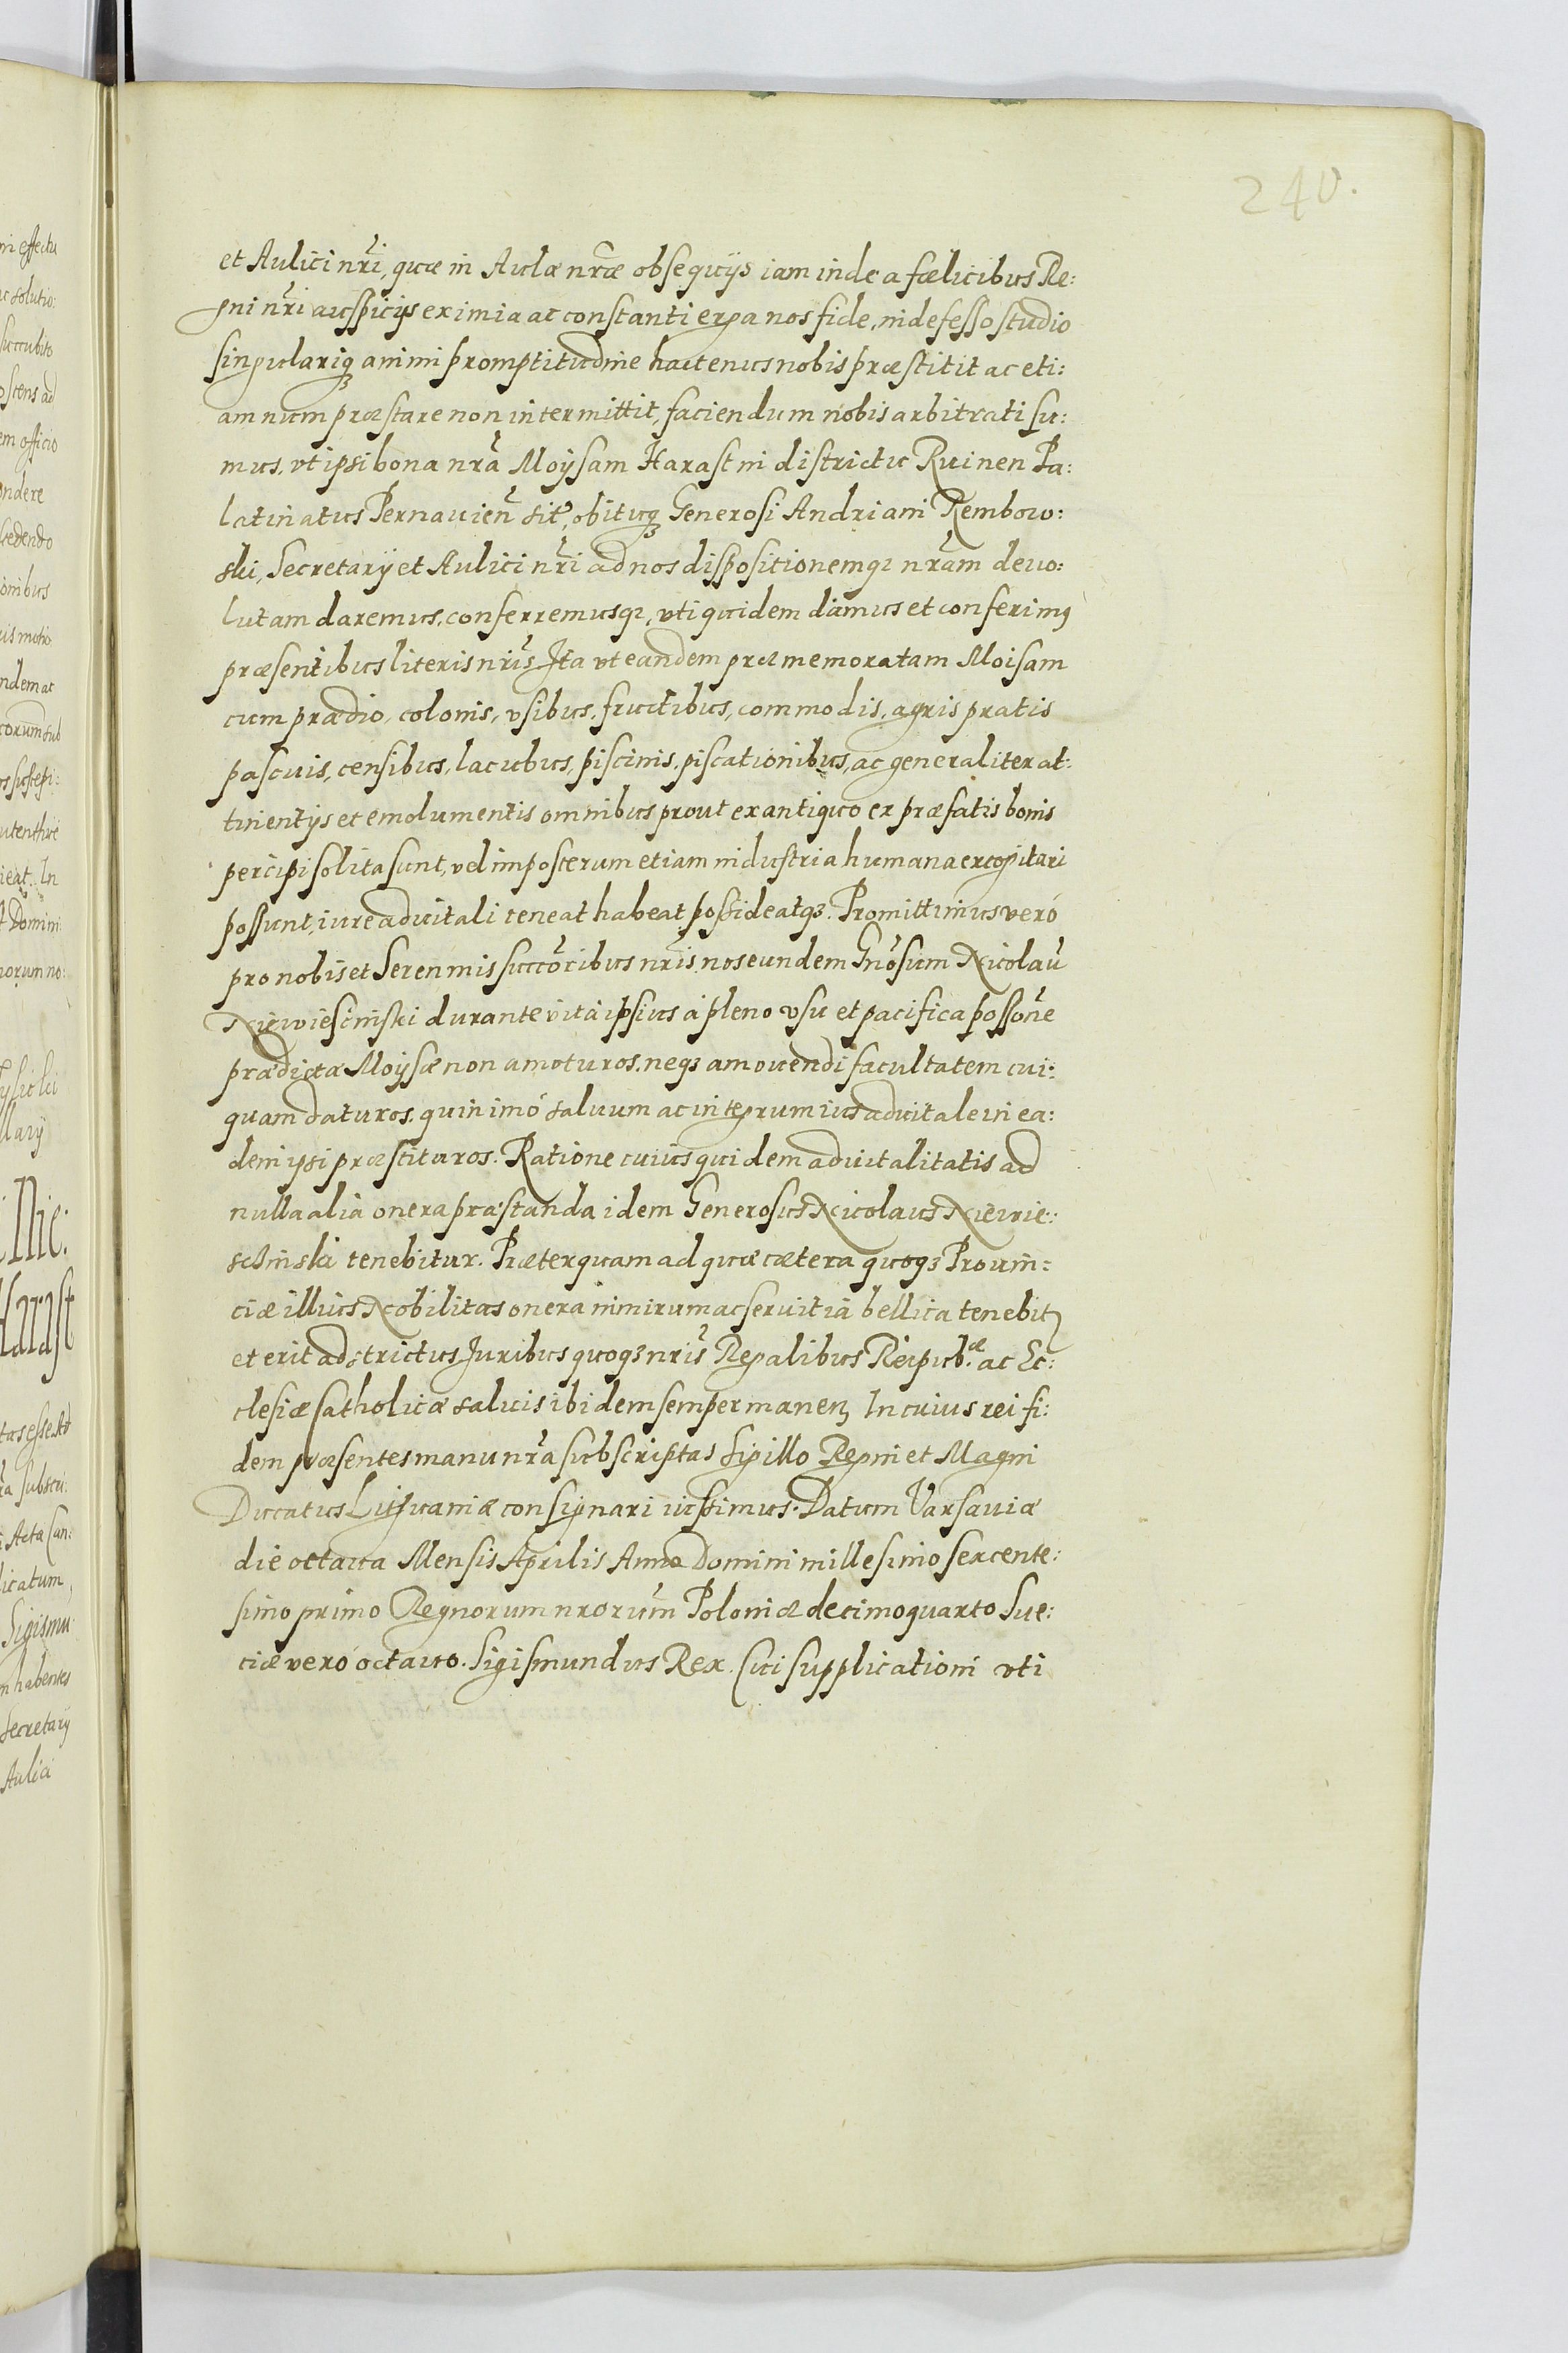 240.
et Aulici nr̃i, quæ in Aulæ nr̃æ obsequijs iam inde a fœlicibus Re:
gni nr̃i auspicijs eximia ac constanti erga nos fide, indefesso studio
singulariq3 animi promptitudine hactenus nobis præstitit ac eti:
am num præstare non intermittit, faciendum nobis arbitrati su:
mus, vt ipsi bona nr̃a Moÿsam Harast in districtu Ruinen Pa:
latinatus Pernauien̄ sit', obituq3 Generosi Andriani Rembow:
ski, Secretarÿ et Aulici nr̃i ad nos dispositionemq3 nr̃am deuo:
lutam daremus, conferremusq3, vti quidem damus et conferim9
præsentibus literis nr̃is Ita vt eandem præmemoratam Moisam
cum prædio, colonis, vsibus, fructibus, commodis, agris pratis
pascuis, censibus, lacubus, piscinis, piscationibus, ac generaliter at:
tinentijs et emolumentis omnibus prout ex antiquo ex præfatis bonis
percipi solita sunt, vel imposterum etiam industria humana excogitari
possunt, iure aduitali teneat habeat possideatq3. Promittimus veró
pro nobis et Serenmis succōribus nr̃is, nos eundem Gñosum Nicolaū
Niewiescinski durante vita ipsius à pleno vsu et pacifica possōne
prædictæ Moÿsæ non amoturos, neq3 amouendi facultatem cui:
quam daturos, quinimó saluum ac integrum ius aduitale in ea:
dem ipsi præstituros. Ratione cuius quidem aduitalitatis ad
nulla alia onera præstanda idem Generosus Nicolaus Niewie:
schinski tenebitur. Præterquam ad quæ cætera quoq3 Prouin:
ciæ illius Nobilitas onera nimirum ac seruitia bellica tenebit
et erit adstrictus Iuribus quoq3 nr̃is Regalibus Reipub.æ ac Ec:
clesiæ Catholicæ saluis ibidem semper manen. In cuius rei fi:
dem præsentes manu nr̃a subscriptas Sigillo Regni et Magni
Ducatus Lithuaniæ consignari iussimus. Datum Varsauiæ
die octaua Mensis Aprilis Anno Domini millesimo sexcente:
simo primo Regnorum nrorum̃ Poloniæ decimoquarto Sue:
ciæ veró octauo. Sigismundus Rex. Cui supplicationi vti